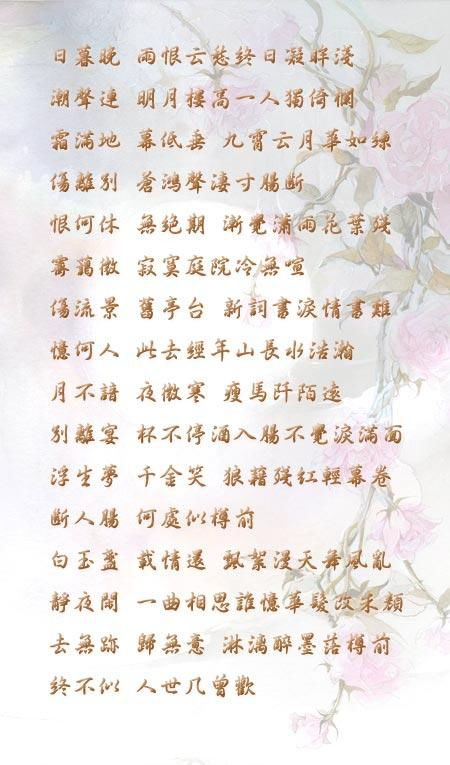 日暮晚 雨恨云愁終日凝眸淺
潮聲連 明月樓高一人獨倚欄
霜滿地 幕低垂 九霄云月華如練
傷離別 蒼鴻聲淒寸腸斷
恨何休 無絕期 漸覺瀟雨花葉殘
霧藹微 寂寞庭院冷無喧
傷流景 舊亭台 新詞書淚情書難
憶何人 此去經年山長水浩瀚
月不諳 夜微寒 瘦馬阡陌遠
別離宴 杯不停酒入腸不覺淚滿面
浮生夢 千金笑 狼藉殘紅輕幕卷
斷人腸 何處似樽前
白玉盞 載情還 飄絮漫天舞風亂
靜夜闌 一曲相思誰憶華髮改朱顏
去無跡 歸無意 淋漓醉墨落樽前
終不似 人世几曾歡